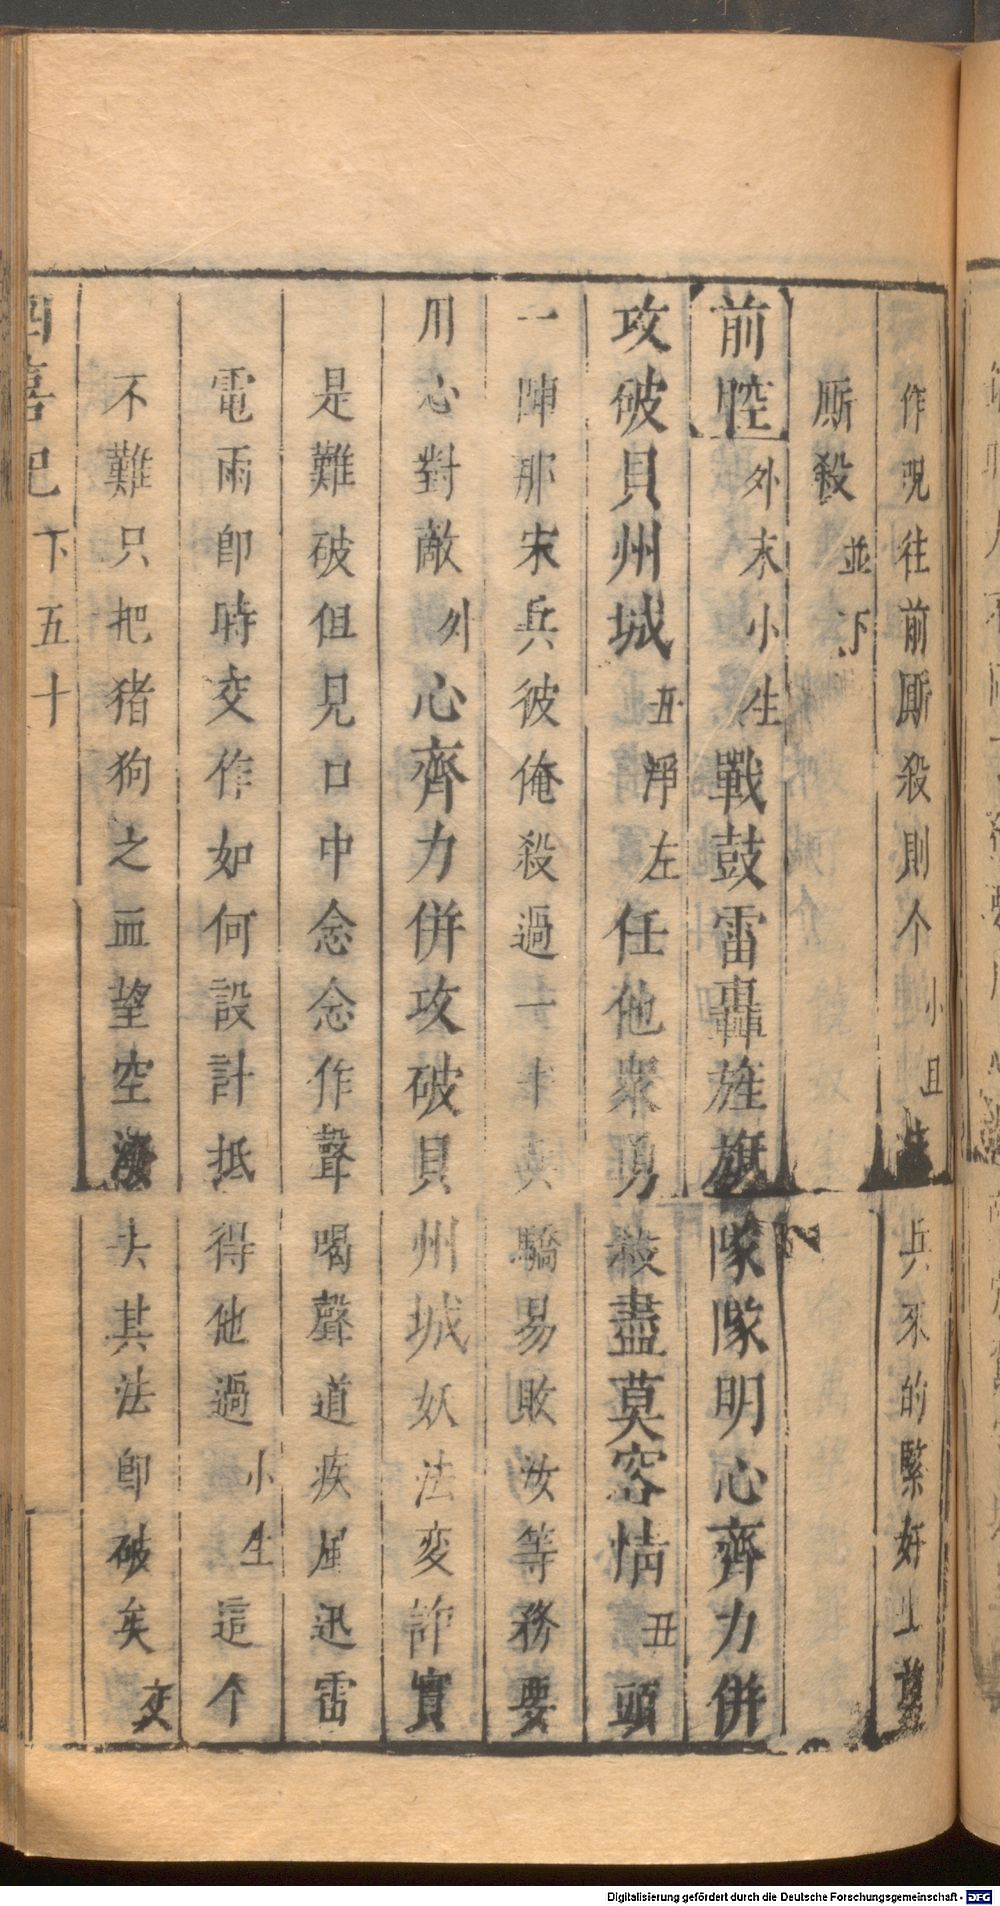 作呪往前厮殺則个小旦兵來的緊好上
厮殺並下
前腔外末小生戰鼓雷轟旌旗隊隊明心齊力併
攻破貝州城丑淨左任他衆勇盡莫容情丑頭
一陣那宋兵彼俺殺過一半兵驕易敗汝等務要
用心對敵外心齊力併攻破貝州城妖法変詐實
是難破但見口中念念作聲喝聲道疾風迅雷
電雨卽時交作如何設計抵得他過小生這个
不難只把猪狗之血望空潑去其法卽破矣交
四喜記 下 五十
Digitalisierung gefördert durch die Deutsche Forschungsgemeinschaft - DFG